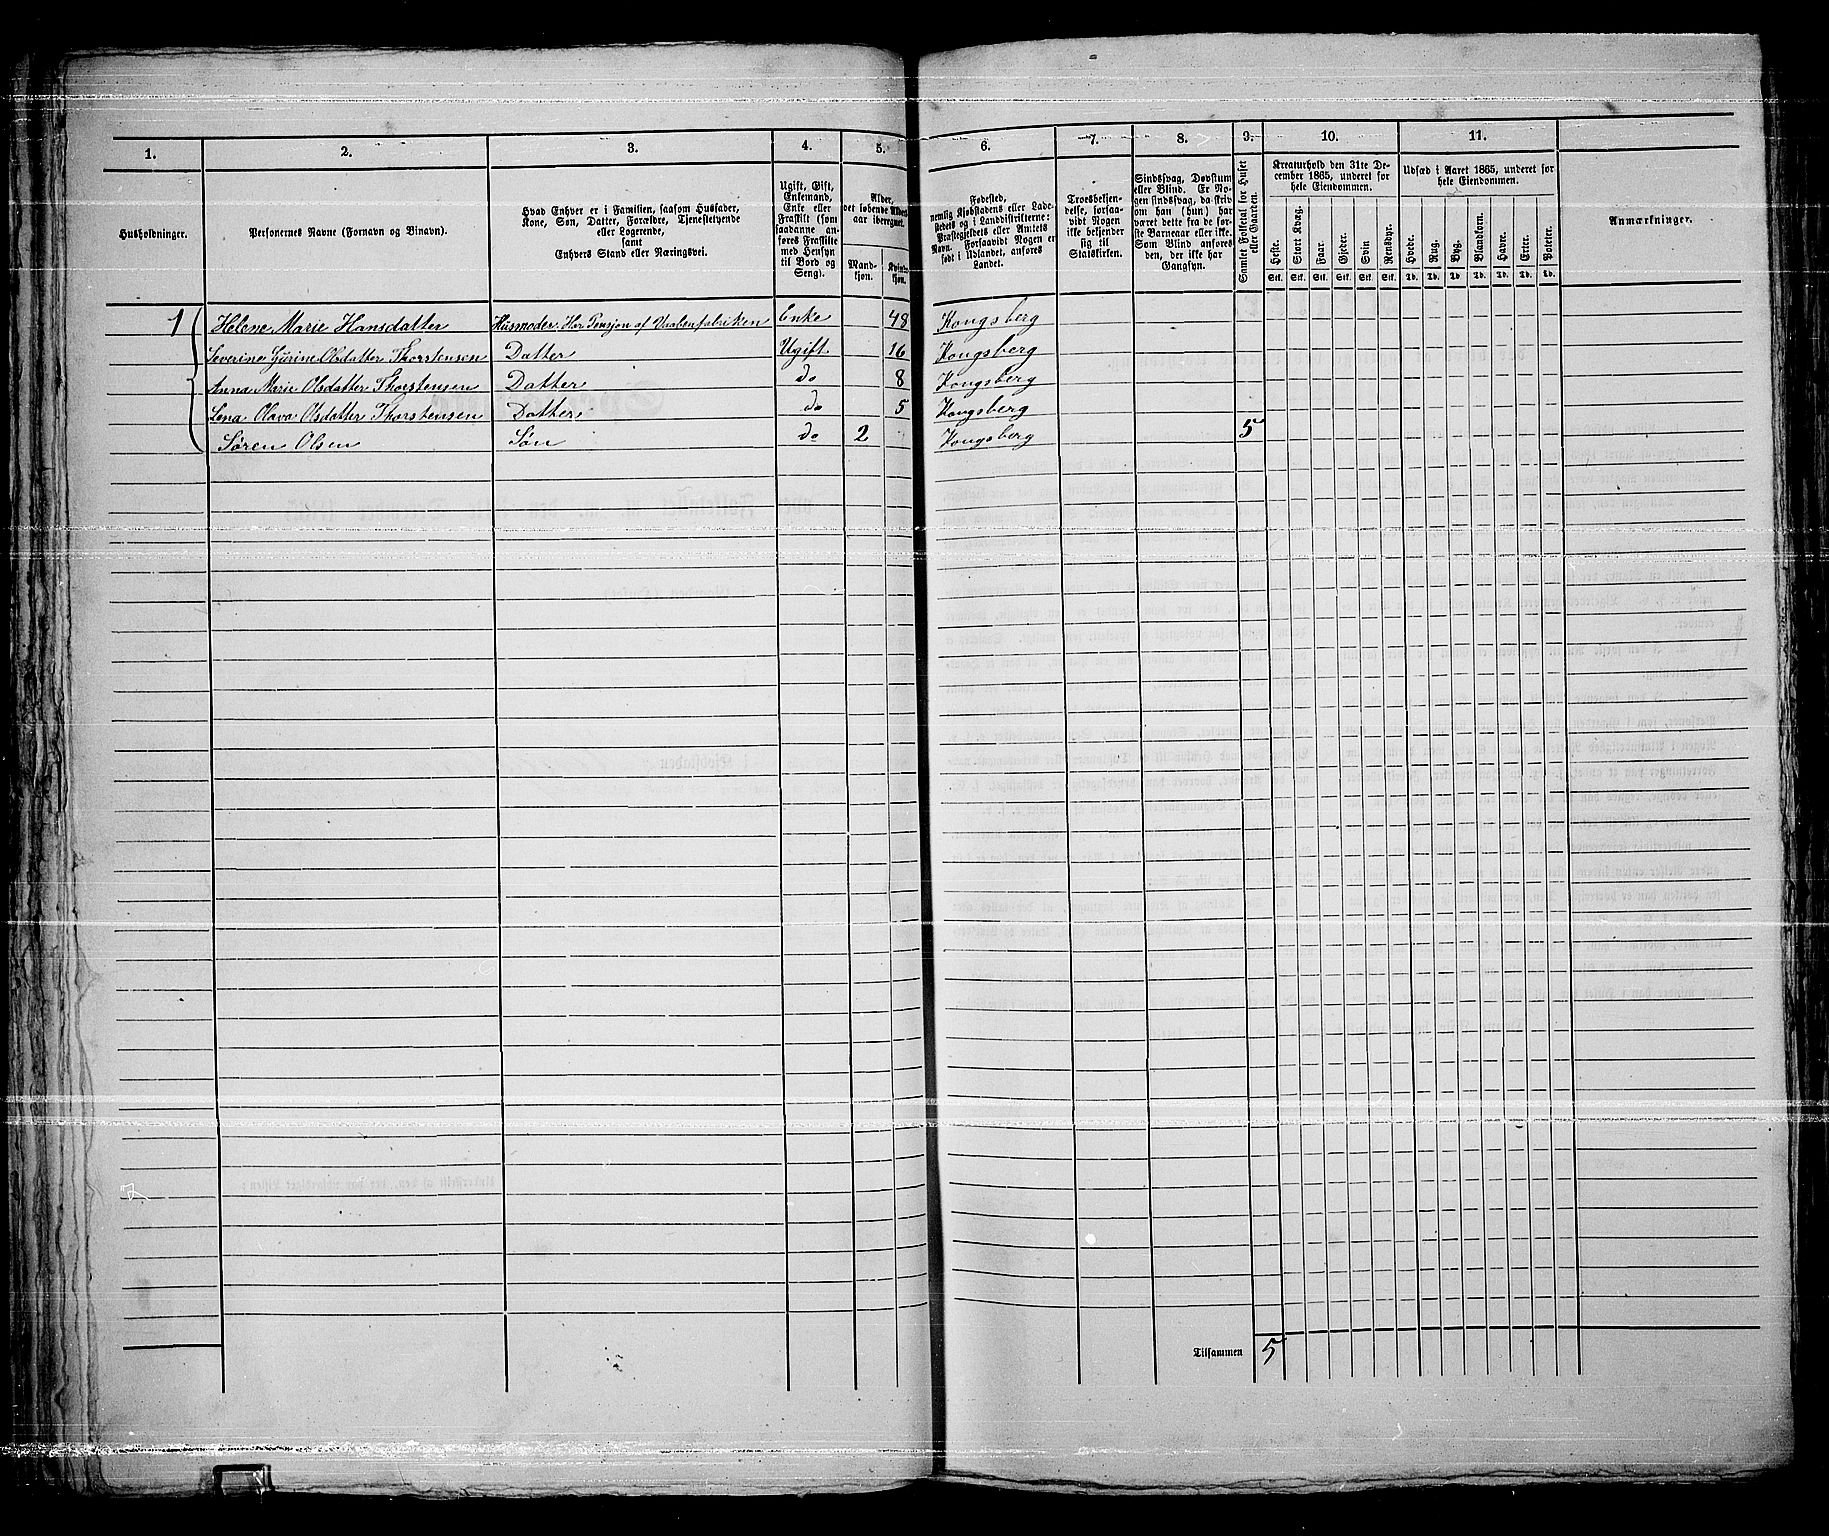 1. 2. 3. 4. 5. 6. 7. 8. 9. 10. 11.
Husholdninger.
Personernes Navne (Fornavn og Binavn).
Hvad Enhver er i Familien, saasom Husfader,
Kone, Søn, Datter, Forældre, Tjenestetyende
eller Logerende,
samt
Enhvers Stand eller Næringsvei.
Ugift, Gift,
Enkemand,
Enke eller
Fraskilt (som
saadanne an-
føres Fraskilte
med Hensyn
til Bord og
Seng).
Alder,
det løbende Alders-
aar iberegnet.
Mand-
kjøn.
Kvinde-
kjøn.
Fødested,
nemlig Kjøbstadens eller Lade-
stedets og i Landdistrikterne:
Præstegjeldets eller Amtets
Navn. Forsaavidt Nogen er
født i Udlandet, anføres
Landet.
Troesbekjen-
delse, forsaa-
vidt Nogen
ikke bekjender
sig til
Statskirken.
Sindssvag, Døvstum
eller Blind. Er No-
gen sindssvag, da skriv
om han (hun) har
været dette fra de før-
ste Barneaar eller ikke.
Som Blind anføres
den, der ikke har
Gangsyn.
Samlet Folketal for Huset
eller Gaarden.
Kreaturhold den 31te De-
cember 1865, underet for
hele Eiendommen.
Heste. Stort Kvæg. Faar. Gjeder. Svin Rensdyr.
Stk. Stk. Stk. Stk. Stk. Stk.
Udsæd i Aaret 1865, underet for
hele Eiendommen.
Hvede. Rug. Byg. Blandkorn. Havre. Erter. Poteter.
Td. Td. Td Td. Td. Td. Td.
Anmærkninger.
1 Helene Marie Hansdatter Husmoder. Har Pensjon af Vaabenfabriken Enke 48 Kongsberg
Severine Gurine Olsdatter Thorstensen Datter Ugift 16 Kongsberg
Anna Marie Olsdatter Thorstensen Datter do 8 Kongsberg
Lena Olava Olsdatter Thorstensen Datter do 5 Kongsberg
Søren Olsen Søn do 2 Kongsberg 5
Tilsammen 5